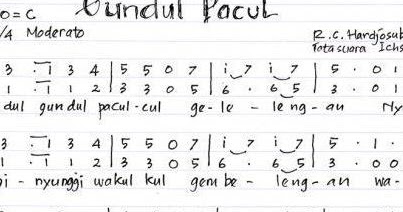 o = C Gundul Pacul
/4 Moderato R.C. Hardjosub
Tota suara Ichs
3 . 1 3 4 | 5 5 0 7 | i 7 i 7 | 5 . 0 1
1 . 1 1 2 | 3 3 0 5 | 6 . 6 5 | 3 . 0 1
dul gundul pacul-cul ge-le-leng-an Ny
3 . 1 3 4 | 5 5 0 7 | i 7 i 7 | 5 . 1 .
1 . 1 1 2 | 3 3 0 5 | 6 . 6 5 | 3 . 0 0
i - nyunggi wakul kul gembe-leng-an wa-